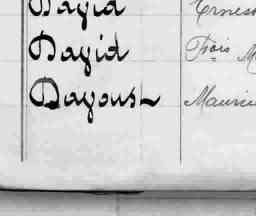 David Ernes
David Trois M
Dayous Mauric